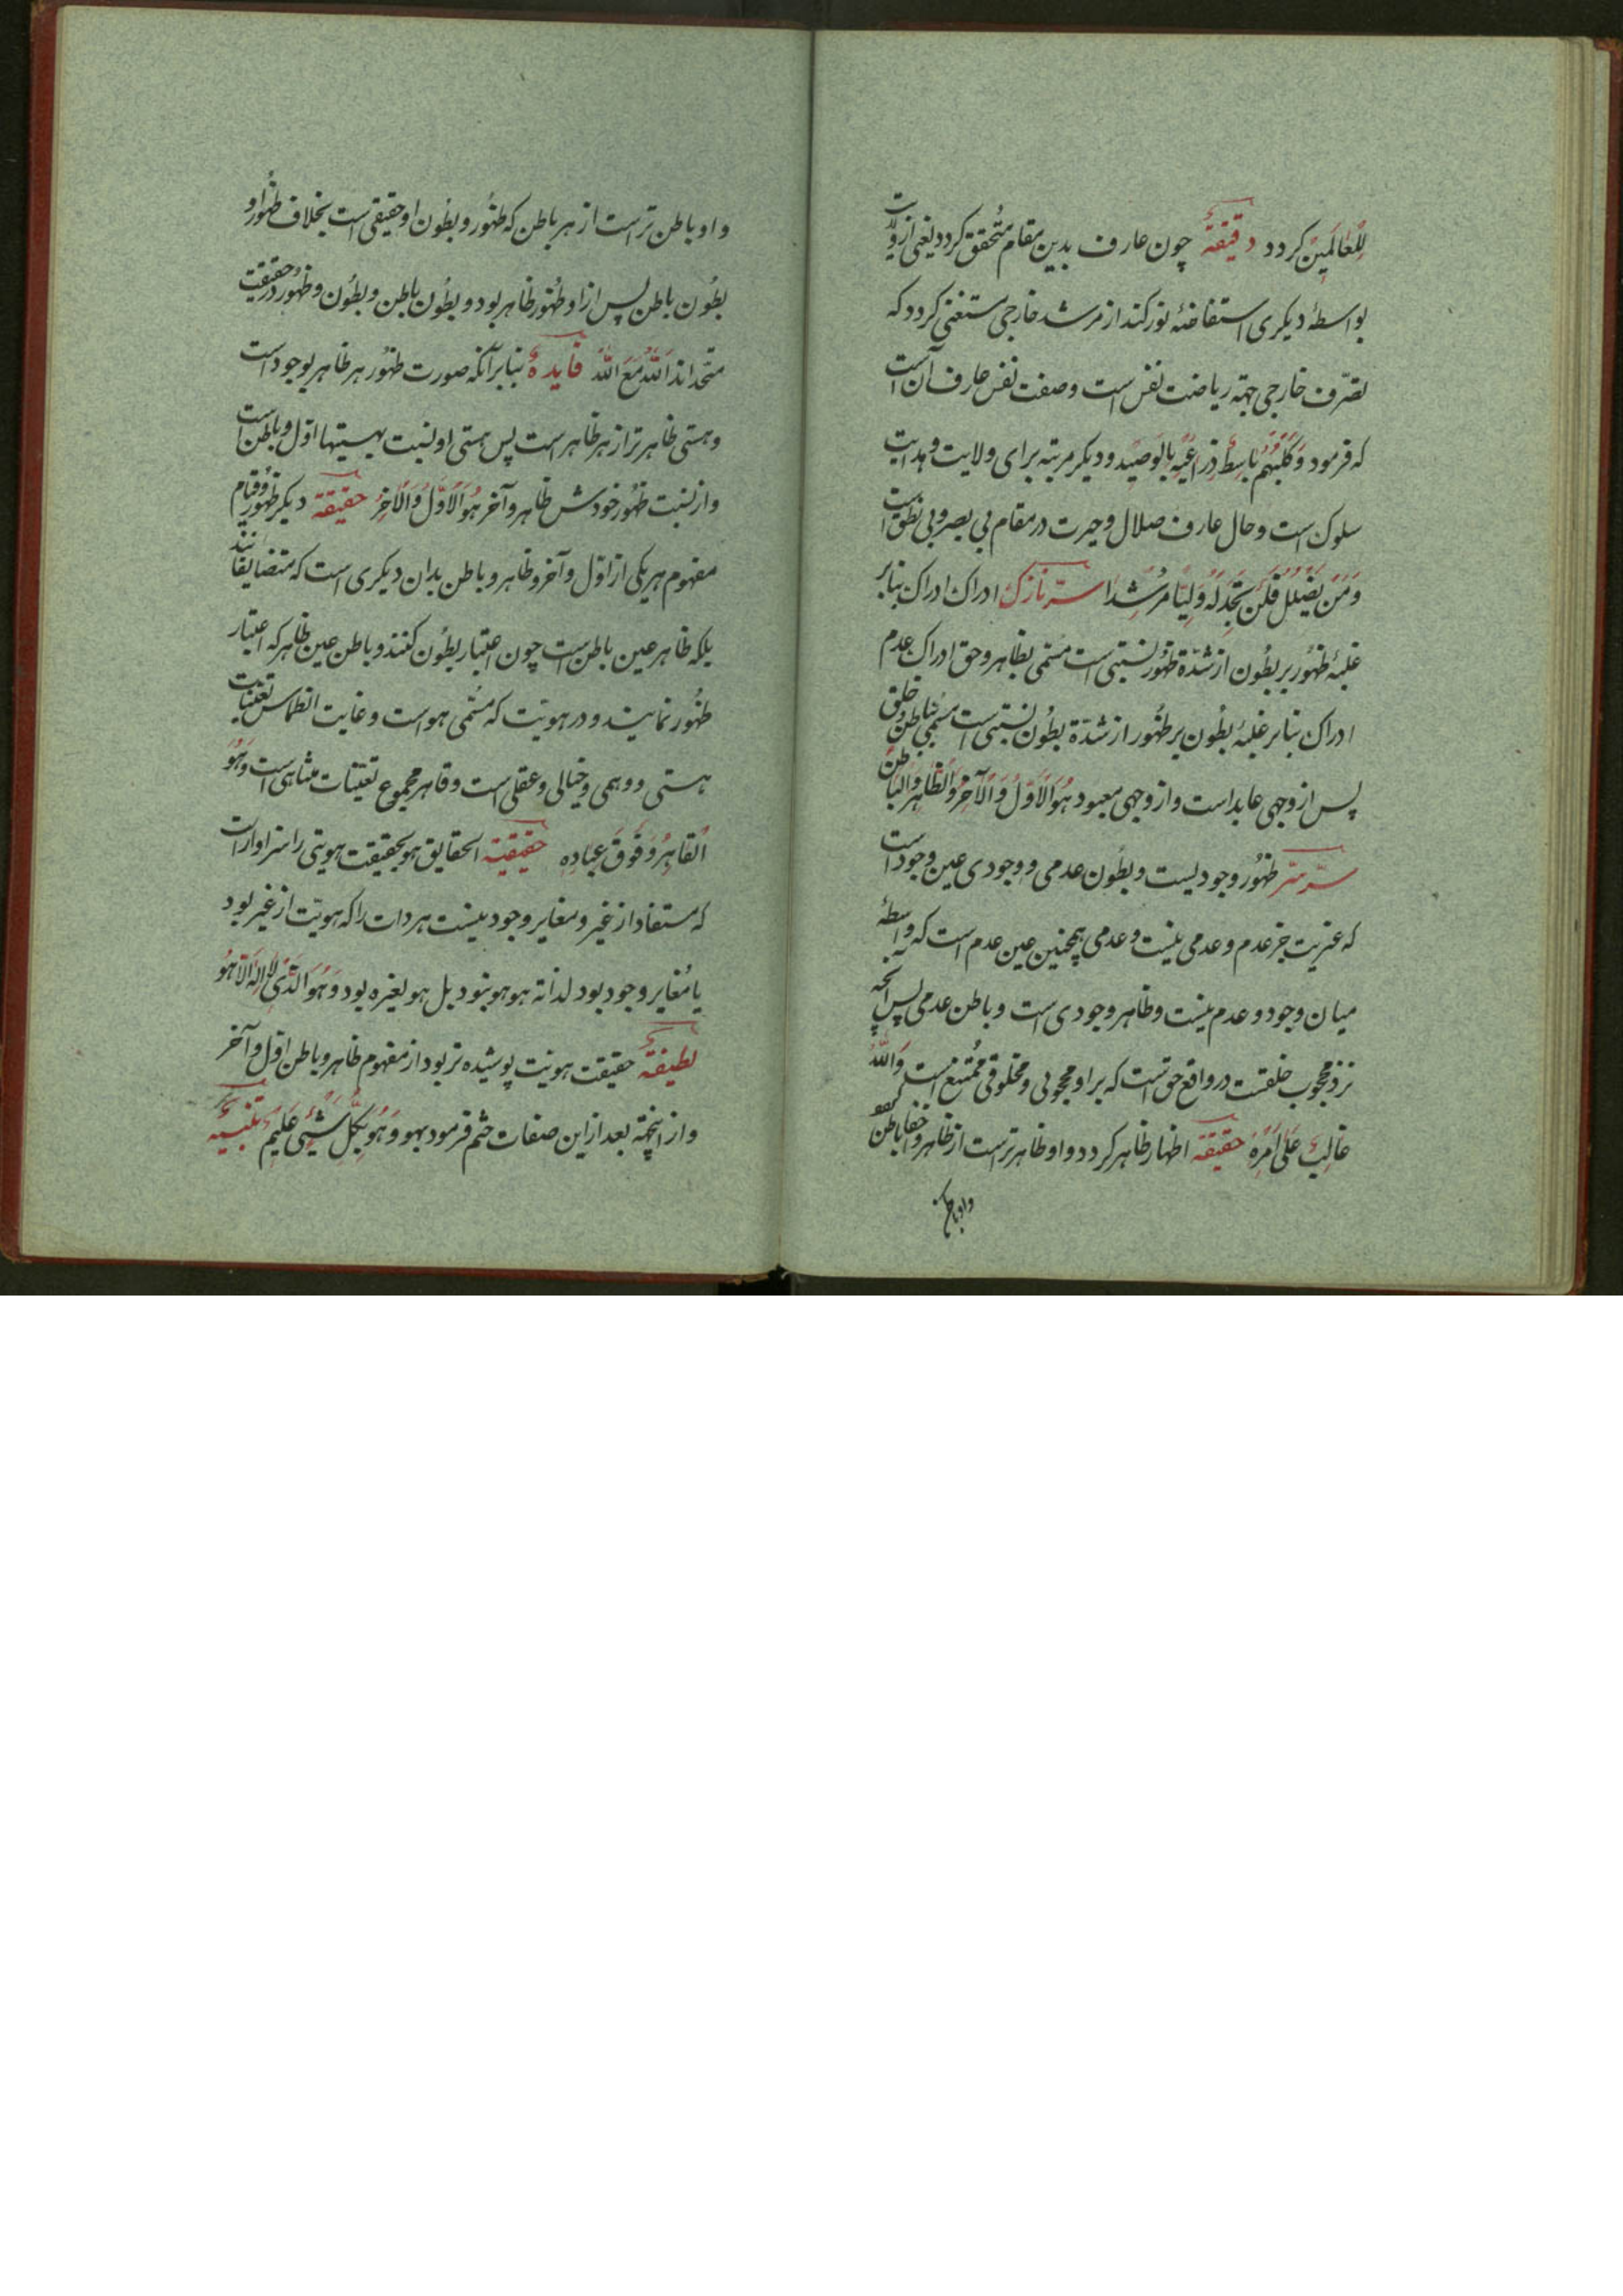 لِلْعَالَمِینَ کردد دقیقةٌ چون عارف بدین مقام مُتحقق کردد یعنی از ولایت
بواسطهٔ دیکری استفاضهٔ نور کند از مرشد خارجی مستغنی کردد که
تصرّف خارجی جهة ریاضت نفس است و صفت نفس عارف آن است
که فرمود وَکَلْبُهُم بَاسِطٌ ذِرَاعَیْهِ بِالْوَصِیْدِ و دیکر مرتبه برای ولایت و هدایت
سلوک است و حال عارف ضلال و حیرت در مقام بی بصر و بی نطق است
وَمَنْ یُضْلِلْ فَلَنْ تَجِدَ لَهُ وَلِیًّا مُرْشِدًا سرّ نازک ادراک ادراک بنابر
غلبهٔ ظهُور بر بطُون از شدّة ظهُور نسبتی است مسمّی بظاهر و حق ادراک عدم
ادراک بنابر غلبهٔ بطُون بر ظهُور از شدّة بطُون نسبتی است مسمّی بباطن و خلق
پس از وجهی عابد است و از وجهی معبود هُوَ الْاَوَّلُ وَالْآخِرُ وَالظَّاهِرُ وَالْبَاطِنُ
سرّ سرّ ظهُور وجودیست و بطُون عدمی و وجودی عین وجود است
که غیریت جز عدم و عدمی نیست و عدمی همچنین عین عدم است که واسطهٔ
میان وجود و عدم نیست و ظاهر وجودی است و باطن عدمی پس آنچه
نزد محجوب خلقست در واقع حق است که بر او محجوبی و مخلوقی ممتنع است وَاللّٰهُ
غَالِبٌ عَلَی اَمْرِهِ حقیقة اظهار ظاهر کردد و او ظاهرتر است از ظاهر و خفا باطن
و او باطن
و او باطن تر است از هر باطن که ظهُور و بطُون او حقیقی است بخلاف ظهُور او
بطُون باطن پس از او ظهُور ظاهر بود و بطُون باطن و بطُون و ظهُور در حقیقت
متحد اند اَللّٰهُ مَعَ اللّٰهِ فایدهٌ بنابر آنکه صورت ظهُور هر ظاهر بوجود است
و هستی ظاهرتر از هر ظاهر است پس هستی او نسبت بهستیها اوّل و باطن است
و از نسبت ظهُور خودش ظاهر و آخر هُوَ الْاَوَّلُ وَالْاٰخِرُ حقیقة دیکر ظهُور و قیام
مفهوم هر یکی از اوّل و آخر و ظاهر و باطن بدان دیکری است که متضایفانند
بلکه ظاهر عین باطن است چون اعتبار بطُون کنند و باطن عین ظاهر که اعتبار
ظهُور نمایند و در هویّت که مسمّی هو است و غایت انطماس تعیّنات
هستی و وهمی و خیالی و عقلی است و قاهر مجموع تعیّنات متناهی است وَهُوَ
الْقَاهِرُ فَوْقَ عِبَادِهِ حقیقة الحقایق هو بحقیقت هویتی را سزاوار است
که مستفاد از غیر و مغایر وجود نیست هر ذات را که هویّت از غیر بود
یا مُغایر وجود بود لذاته هو هو نبود بل هو لغیره بود وَهُوَ الَّذِی لَا اِلٰهَ اِلَّا هُوَ
لطیفةٌ حقیقت هویت پوشیده تر بود از مفهوم ظاهر و باطن اوّل و آخر
و از اینجهة بعد از این صفات ختم فرمود بهو وَهُوَ بِکُلِّ شَیْئٍ عَلِیْمٌ تنبیهٌ